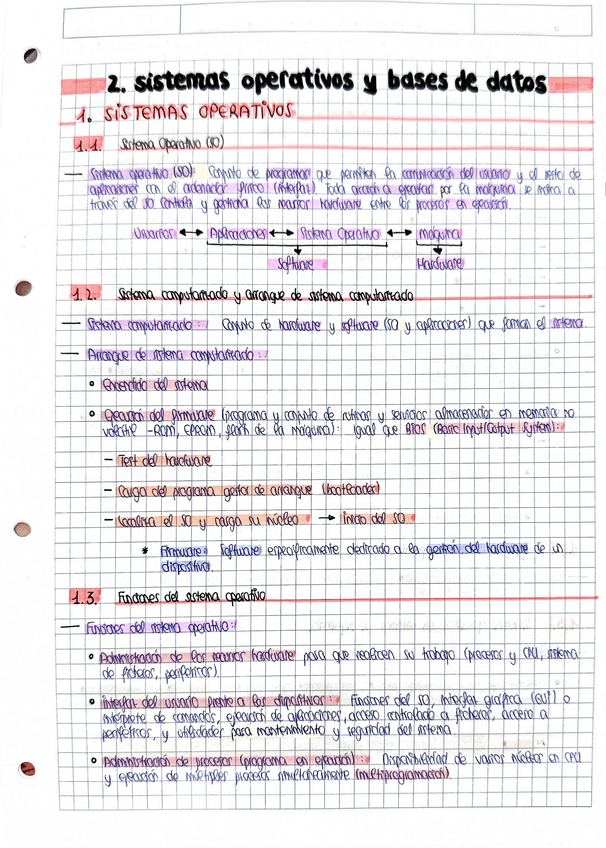 2. sistemas operativos y bases de datos
1. SISTEMAS OPERATIVOS
1.1. Sistema Operativo (SO)
— Sistema operativo (SO): Conjunto de programas que permiten la comunicación del usuario y el resto de
aplicaciones con el ordenador físico (interfaz). Toda acción a ejecutar por la máquina se realiza a
través del SO. Controla y gestiona los recursos hardware entre los procesos en ejecución.
Usuarios ↔ Aplicaciones ↔ Sistema Operativo ↔ máquina
Software Hardware
1.2. Sistema computarizado y arranque de sistema computarizado
— Sistema computarizado: Conjunto de hardware y software (SO y aplicaciones) que forman el sistema.
— Arranque de sistema computarizado:
• Encendido del sistema
• Ejecución del firmware (programa y conjunto de rutinas y servicios almacenados en memoria no
volátil -ROM, EPROM, flash de la máquina): igual que BIOS (Basic Input/Output System):
- Test del hardware
- Carga del programa gestor de arranque (bootloader)
- Localiza el SO y carga su núcleo → inicio del SO
* Firmware: Software específicamente dedicado a la gestión del hardware de un
dispositivo.
1.3. Funciones del sistema operativo
— Funciones del sistema operativo:
• Administración de los recursos hardware para que realicen su trabajo (procesos y CPU, sistema
de ficheros, periféricos).
• interfaz del usuario frente a los dispositivos: Funciones del SO, interfaz gráfica (GUI) o
intérprete de comandos, ejecución de aplicaciones, acceso controlado a ficheros, acceso a
periféricos, y utilidades para mantenimiento y seguridad del sistema.
• Administración de procesos (programa en ejecución): Disponibilidad de varios núcleos en CPU
y ejecución de múltiples procesos simultáneamente (multiprogramación).